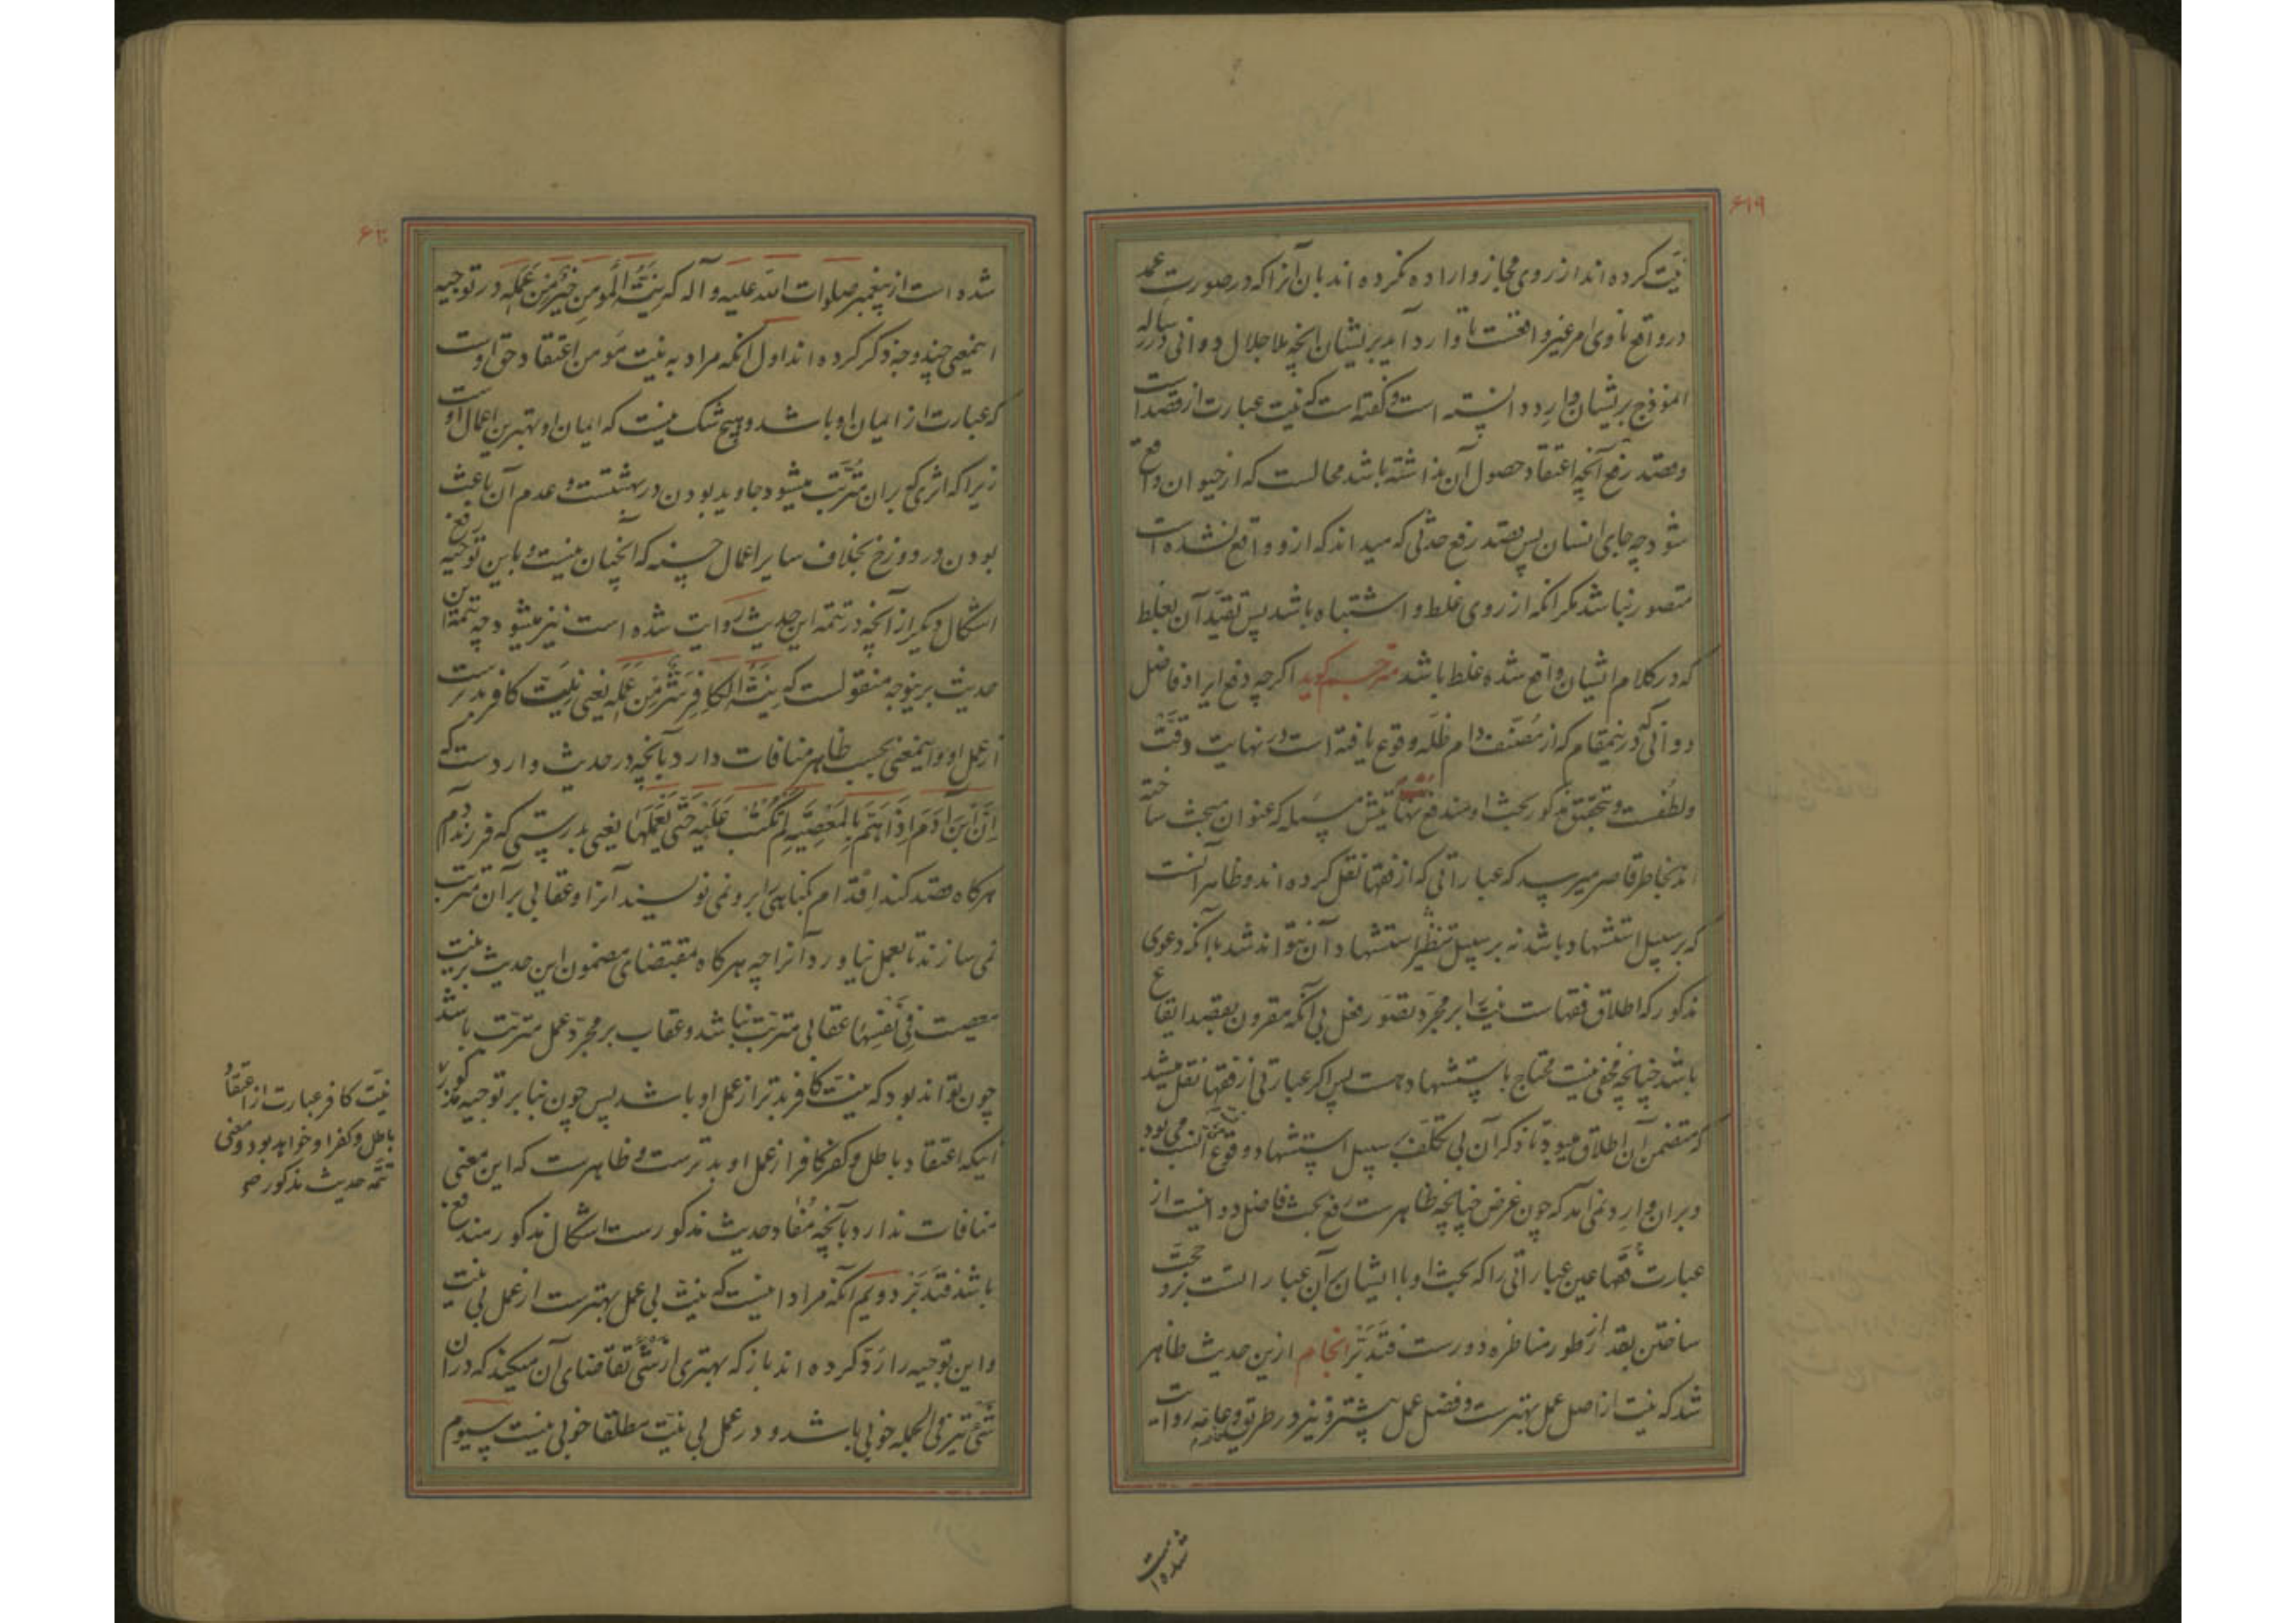 ۶۱۹
نیت کرده‌اند از روی مجاز و اراده نکرده‌اند بان آنرا که در صورت عمد
در واقع ناوی امر غیر واقعست تا وارد آید بریشان آنچه ملا جلال دوانی در رساله
انموذج بریشان وارد دانسته است و گفته است که نیت عبارت از قصد است
و قصد رفع آنچه اعتقاد حصول آن نداشته باشد محالست که از حیوان واقع
شود چه جای انسان پس قصد رفع حدثی که میداند که ازو واقع نشده است
متصور نباشد مگر آنکه از روی غلط و اشتباه باشد پس تقیید آن بغلط
که در کلام ایشان واقع شده غلط باشد مترجم گوید اگرچه دفع ایراد فاضل
دوانی که درینمقام که از مصنف دام ظله وقوع یافته است در نهایت دقت
و لطفست و بتحقیق مذکور بحث او مندفع نهایتش مسئله که عنوان مبحث ساخته
اند بخاطر قاصر میرسد که عباراتی که از فقها نقل کرده‌اند و ظاهر آنست
که بر سبیل استشهاد باشد نه بر سبیل تنظیر استشهاد آن نتواند شد با آنکه دعوی
مذکور که اطلاق فقهاست نیت را بر مجرد تصور فعل بی آنکه مقرون بقصد ایقاع
باشد چنانچه مخفی نیست محتاج باستشهاد هست پس اگر عبارتی از فقها نقل میشد
که متضمن آن اطلاق میبود تا ذکر آن بی تکلف بر سبیل استشهاد وقوع انسب می بود
و بران وارد نمی آمد که چون غرض چنانچه ظاهرست رفع بحث فاضل دوانیست از
عبارت فقها عین عباراتی را که بحث او با ایشان بر آن عبارا تست برو حجت
ساختن بقدر از طور مناظره دورست فتدبر انجام ازین حدیث ظاهر
شد که نیت از اصل عمل بهترست و فضل عمل پیشتر و نیز در طریق عامه روایت
شده است
۶۲۰
شده است از پیغمبر صلوات الله علیه و آله که نیة المؤمن خیر من عمله در توجیه
اینمعنی چند وجه ذکر کرده‌اند اول آنکه مراد به نیت مومن اعتقاد حق اوست
که عبارت از ایمان او باشد و هیچ شک نیست که ایمان او بهترین اعمال اوست
زیرا که اثری که بران مترتب میشود جاوید بودن در بهشتست و عدم آن باعث
بودن در دوزخ بخلاف سایر اعمال حسنه که آنچنان نیست و باین توجیه رفع
اشکال دیگر از آنچه در تتمه این حدیث روایت شده است نیز میشود چه تتمه این
حدیث برینوجه منقولست که نیة الکافر شر من عمله یعنی نیت کافر بدترست
از عمل او و اینمعنی بحسب ظاهر منافات دارد بآنچه در حدیث واردست که
ان ابن آدم اذا هم بالمعصیه لم تکتب علیه حتی یعملها یعنی بدرستی که فرزند آدم
هرگاه قصد کند اقدام گناهی را برو نمی نویسند آنرا و عقابی بر آن مترتب
نمی سازند تا بعمل نیاورد آنرا چه هرگاه مقتضای مضمون این حدیث بر نیت
معصیت فی نفسها عقابی مترتب نباشد و عقاب بر مجرد عمل مترتب باشد
چون تواند بود که نیت کافر بدتر از عمل او باشد پس چون بنا بر توجیه مذکور
اینکه اعتقاد باطل و کفر کافر از عمل او بدترست و ظاهرست که این معنی
منافات ندارد بآنچه مفاد حدیث مذکورست اشکال مذکور مندفع
باشد فتدبر دویم آنکه مراد اینست که نیت بی عمل بهترست از عمل بی نیت
و این توجیه را رد کرده‌اند باز که بهتری از شئ تقاضای آن میکند که در ان
شئ نیز فی الجمله خوبی باشد و در عمل بی نیت مطلقا خوبی نیست سیوم
نیت کافر عبارت از اعتقاد
باطل و کفر او خواهد بود و معنی
تتمه حدیث مذکور